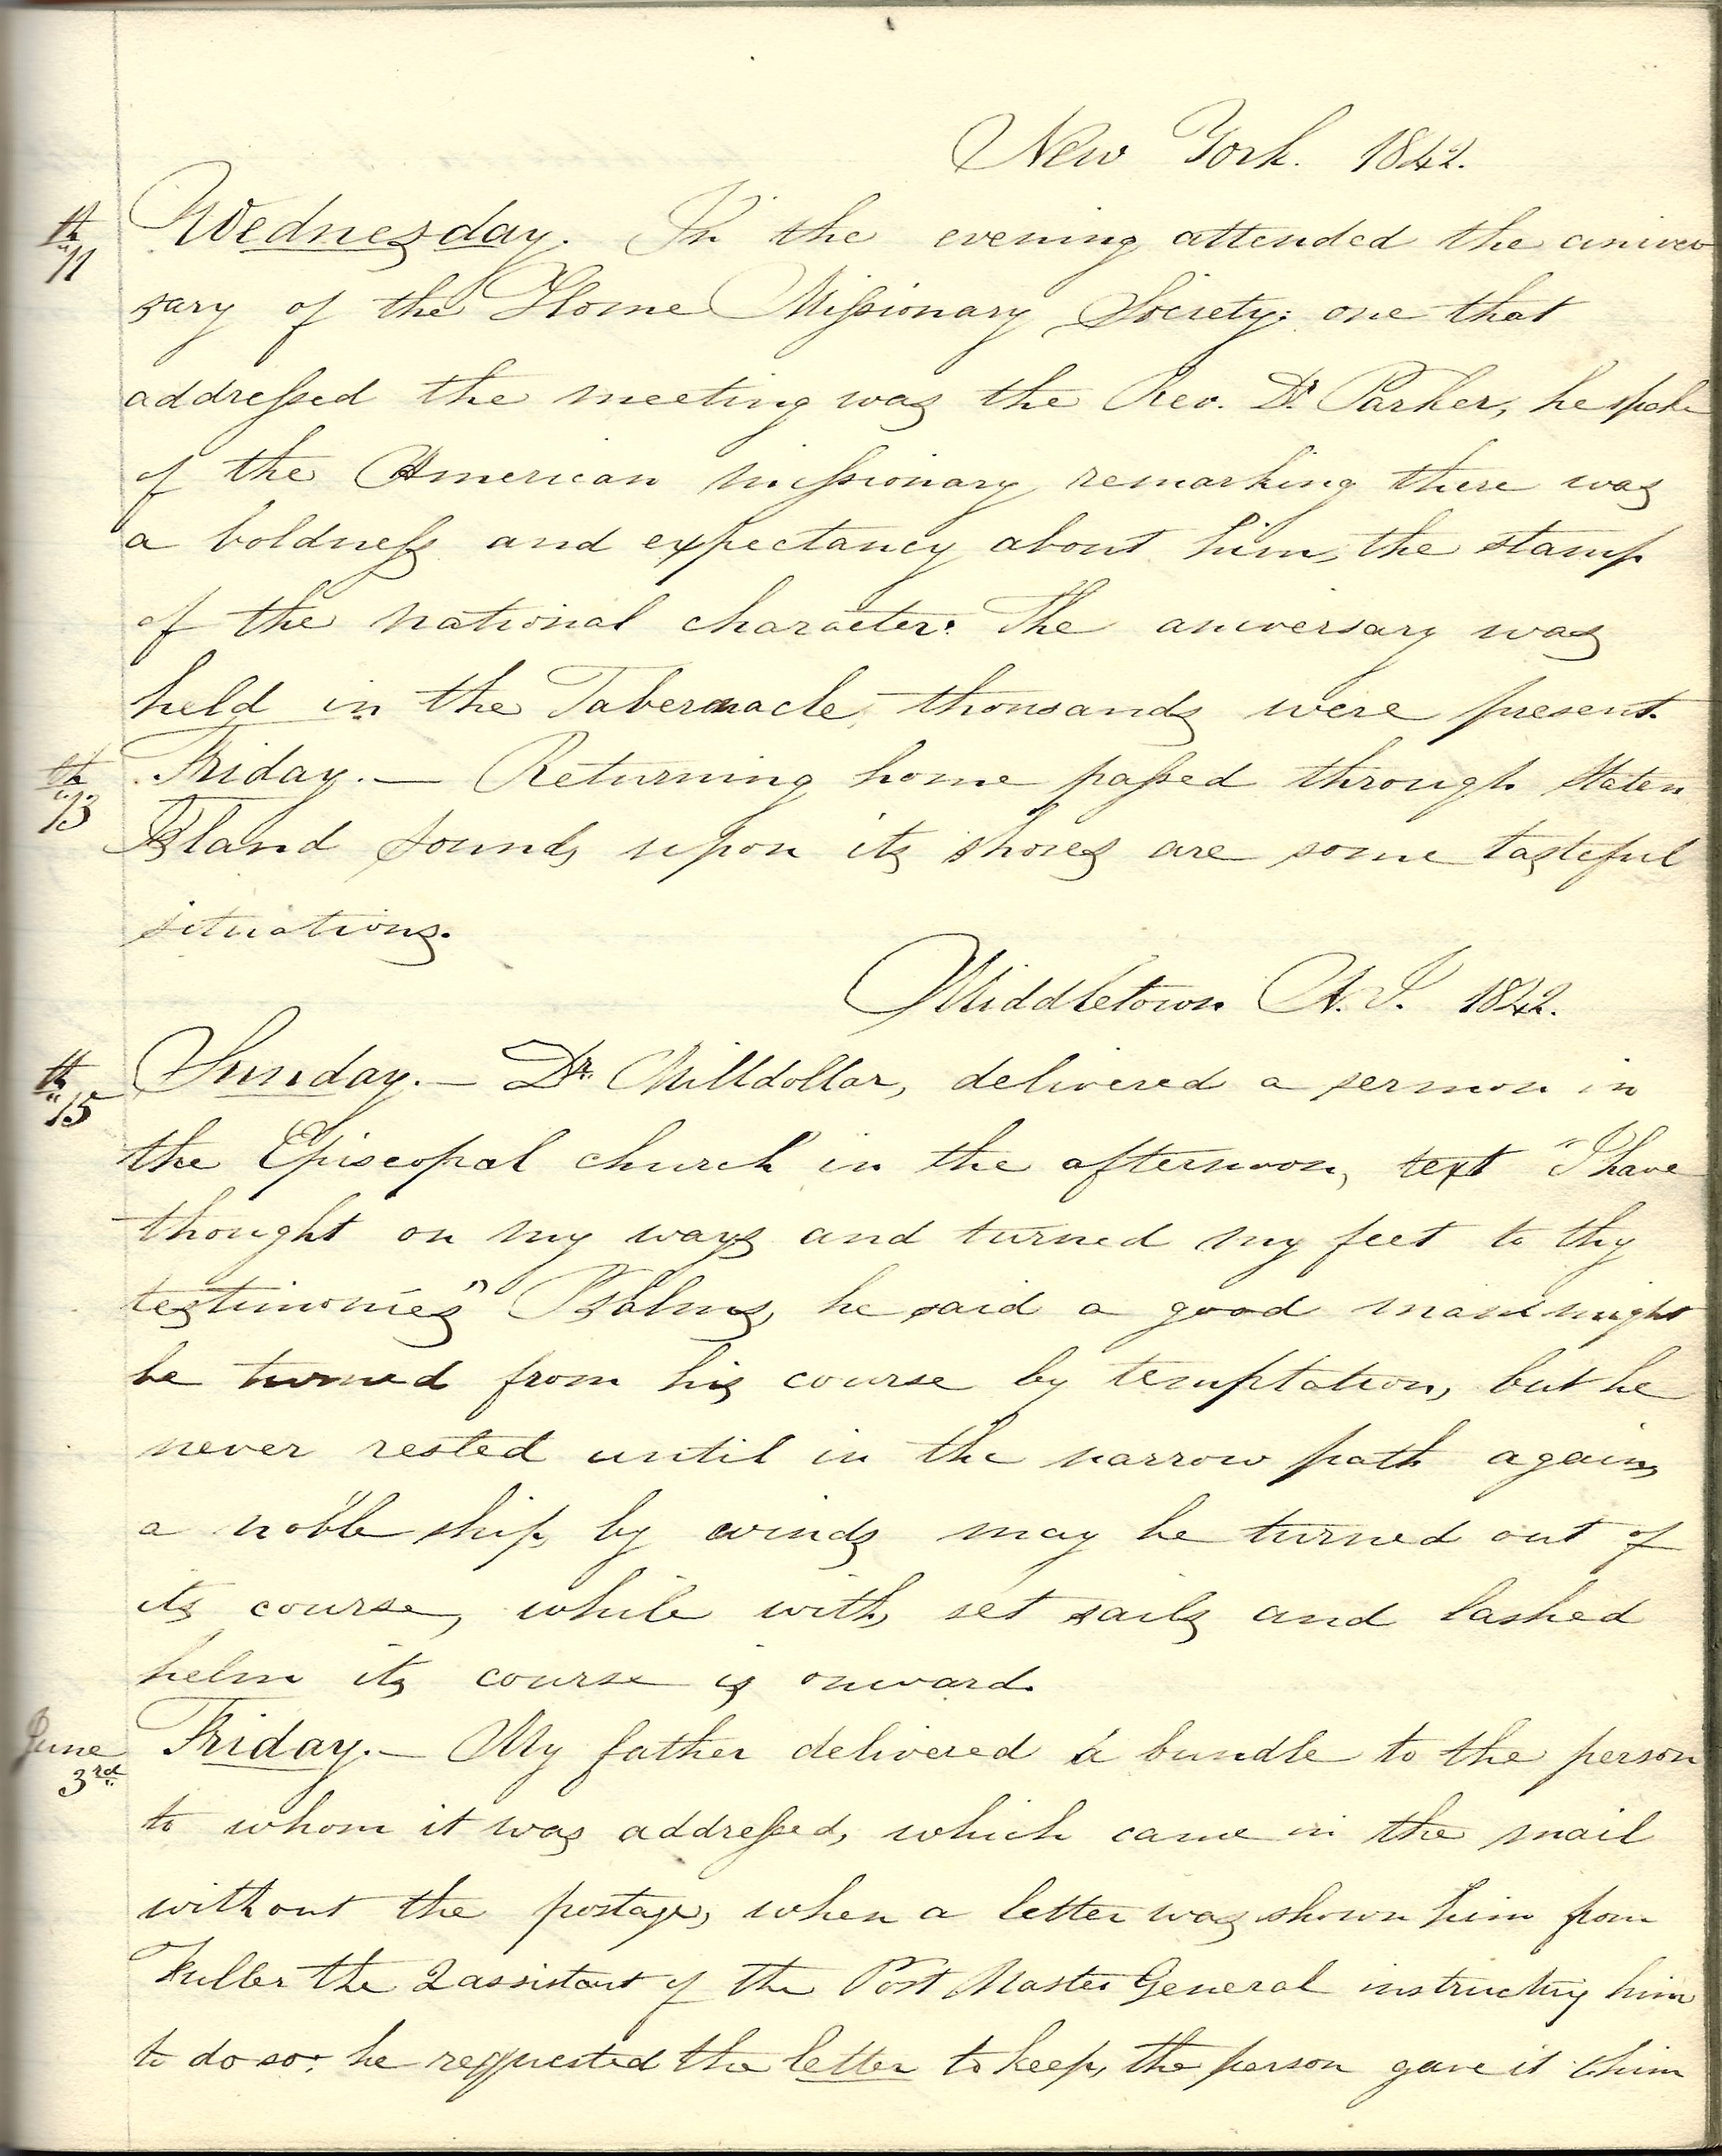 New York. 1842.
th 11 Wednesday. In the evening attended the aniver
sary of the Home Missionary Society; one that
addressed the meeting was the Rev. Dr. Parker, he spoke
of the American missionary remarking there was
a boldness and expectancy about him, the stamp
of the national character. The aniversary was
held in the Tabernacle, thousands were present.
th 13 Friday.— Returning home passed through Staten
Island sound, upon its shores are some tasteful
situations.
Middletown N.J. 1842.
th 15 Sunday.— Dr. Milldollar, delivered a sermon in
the Episcopal church in the afternoon, text "I have
thought on my ways and turned my feet to thy
testimonies" Psalms, he said a good man might
be turned from his course by temptation, but he
never rested until in the narrow path again,
a noble ship, by winds may be turned out of
its course, while with, set sails and lashed
helm its course is onward.
June 3rd Friday.— My father delivered a bundle to the person
to whom it was addressed, which came in the mail
without the postage, when a letter was shown him from
Fuller the 2 assistant of the Post Master General instructing him
to do so: he requested the letter to keep, the person gave it him